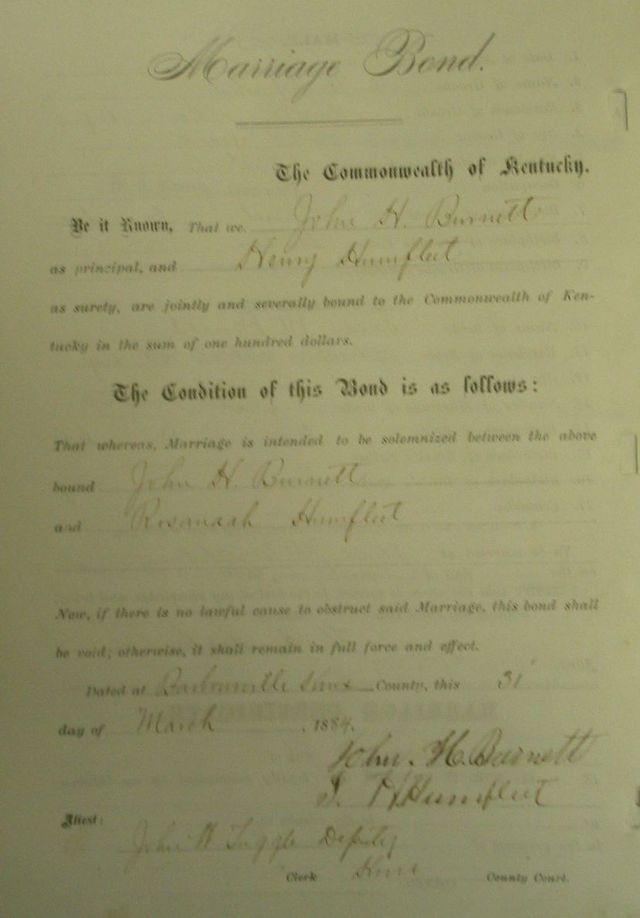 Marriage Bond.
The Commonwealth of Kentucky.
Be it Known, That we John H. Burnett
as principal, and Henry Humfleet
as surety, are jointly and severally bound to the Commonwealth of Ken-
tucky in the sum of one hundred dollars.
The Condition of this Bond is as follows:
That whereas, Marriage is intended to be solemnized between the above
bound John H. Burnett
and Rosanaah Humfleet
Now, if there is no lawful cause to obstruct said Marriage, this bond shall
be void; otherwise, it shall remain in full force and effect.
Dated at Barbourville Knox County, this 31
day of March, 1884.
John. H. Burnett
Humfleet
Attest:
John W Tuggle Deputy
Clerk Knox County Court.